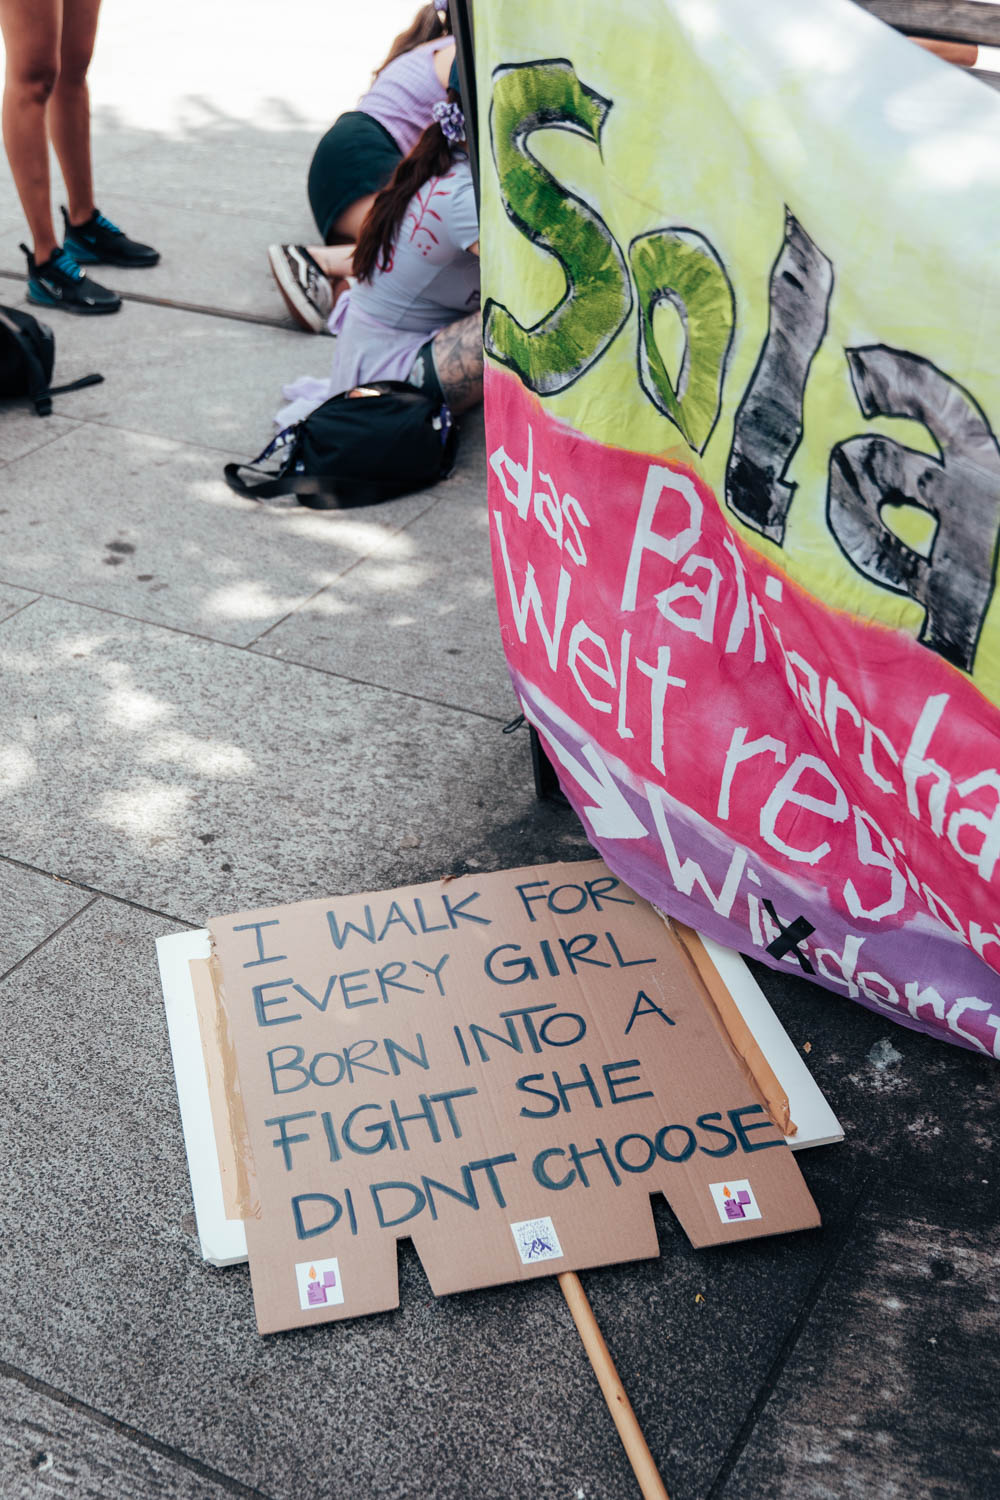 Sola
das Patriarcha
Welt regier
Wid, 
I WALK FOR
EVERY GIRL
BORN INTO A
FIGHT SHE
DIDNT CHOOSE